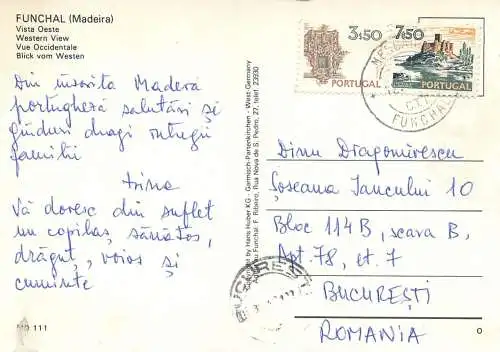 FUNCHAL (Madeira)
Vista Oeste
Western View
Vue Occidentale
Blick vom Westen
Din însorita Madera
portugheză salutări și
gînduri dragi întregii
familii
Irina
Vă doresc din suflet
un copilaș, sănătos,
drăguț, voios și
cuminte
MD 111
Published by Hans Huber KG - Garmisch-Partenkirchen - West Germany
Funchal: F. Ribeiro, Rua Nova de S. Pedro, 27, telef. 23930
3$50
PORTUGAL
7$50
PORTUGAL
CTT
FUNCHAL
Dinu Dragomirescu
Șoseaua Iancului 10
Bloc 114B, scara B,
Apt. 78, et. 7
BUCUREȘTI
ROMANIA
BUCUREȘTI
O